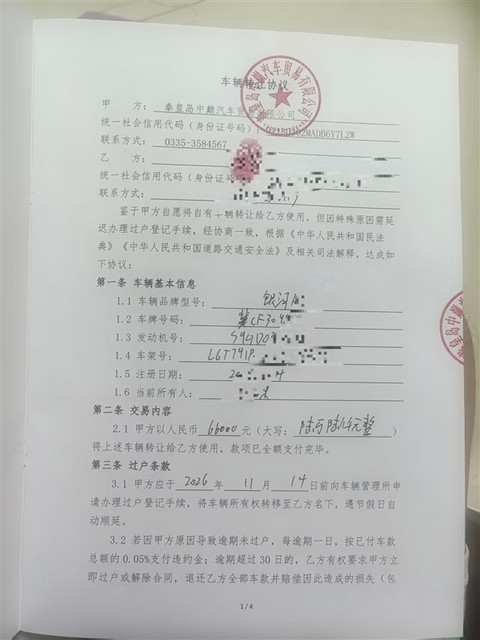 车辆转让协议
甲 方: 秦皇岛中巅汽车贸易有限公司
统一社会信用代码(身份证号码): 2MADB6Y7L2W
联系方式: 0335-3584567
乙 方:
统一社会信用代码(身份证号
联系方式:
鉴于甲方自愿将自有 辆转让给乙方使用,但因特殊原因需延
迟办理过户登记手续,经协商一致,根据《中华人民共和国民法
典》《中华人民共和国道路交通安全法》及相关司法解释,达成如
下协议:
第一条 车辆基本信息
1.1 车辆品牌型号: 银河
1.2 车牌号码: 冀CF30
1.3 发动机号:
1.4 车架号: L6T791P
1.5 注册日期: 20
1.6 当前所有人:
第二条 交易内容
2.1 甲方以人民币 66000 元(大写: 陆万陆仟元整 )
将上述车辆转让给乙方使用,款项已全额支付完毕。
第三条 过户条款
3.1 甲方应于 2026 年 11 月 14 日前向车辆管理所申
请办理过户登记手续,将车辆所有权转移至乙方名下,遇节假日自
动顺延。
3.2 若因甲方原因导致逾期未过户,每逾期一日,按已付车款
总额的 0.05%支付违约金;逾期超过 30 日的,乙方有权要求甲方立
即过户或解除合同,退还乙方全部车款并赔偿因此造成的损失(包
1/4